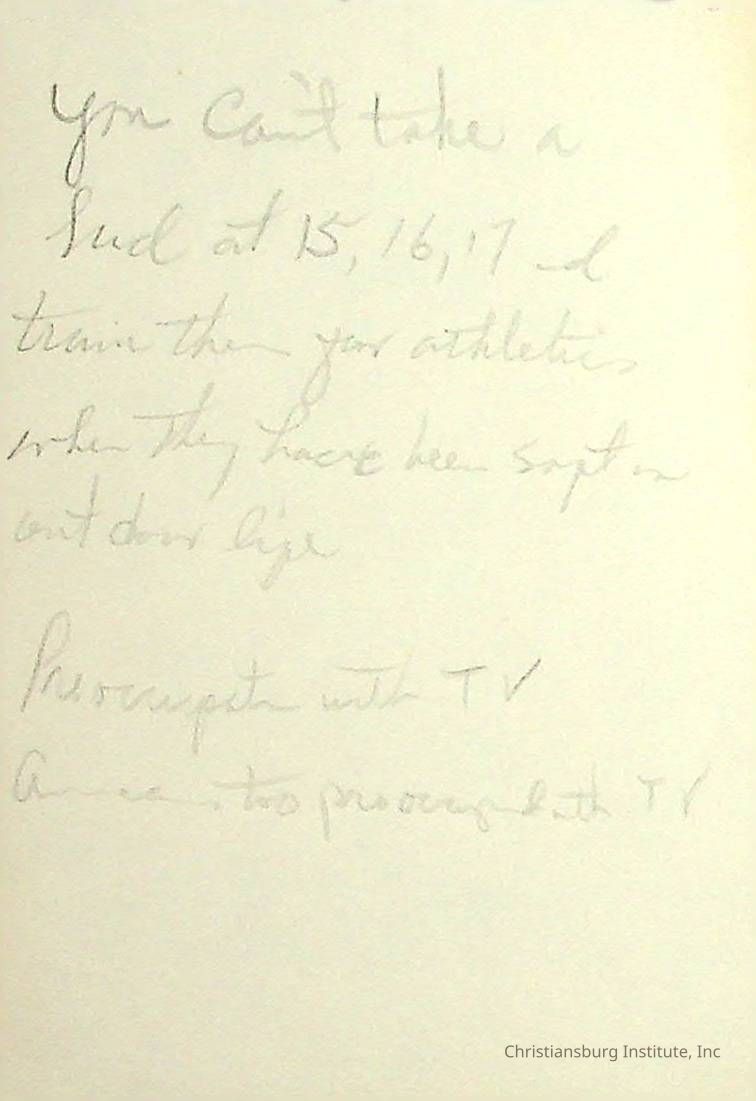 You Can't take a
at 15, 16, 17
train them for athletics
when they have been soft in
out door life
Preoccupation with TV
too preoccupied with TV
Christiansburg Institute, Inc